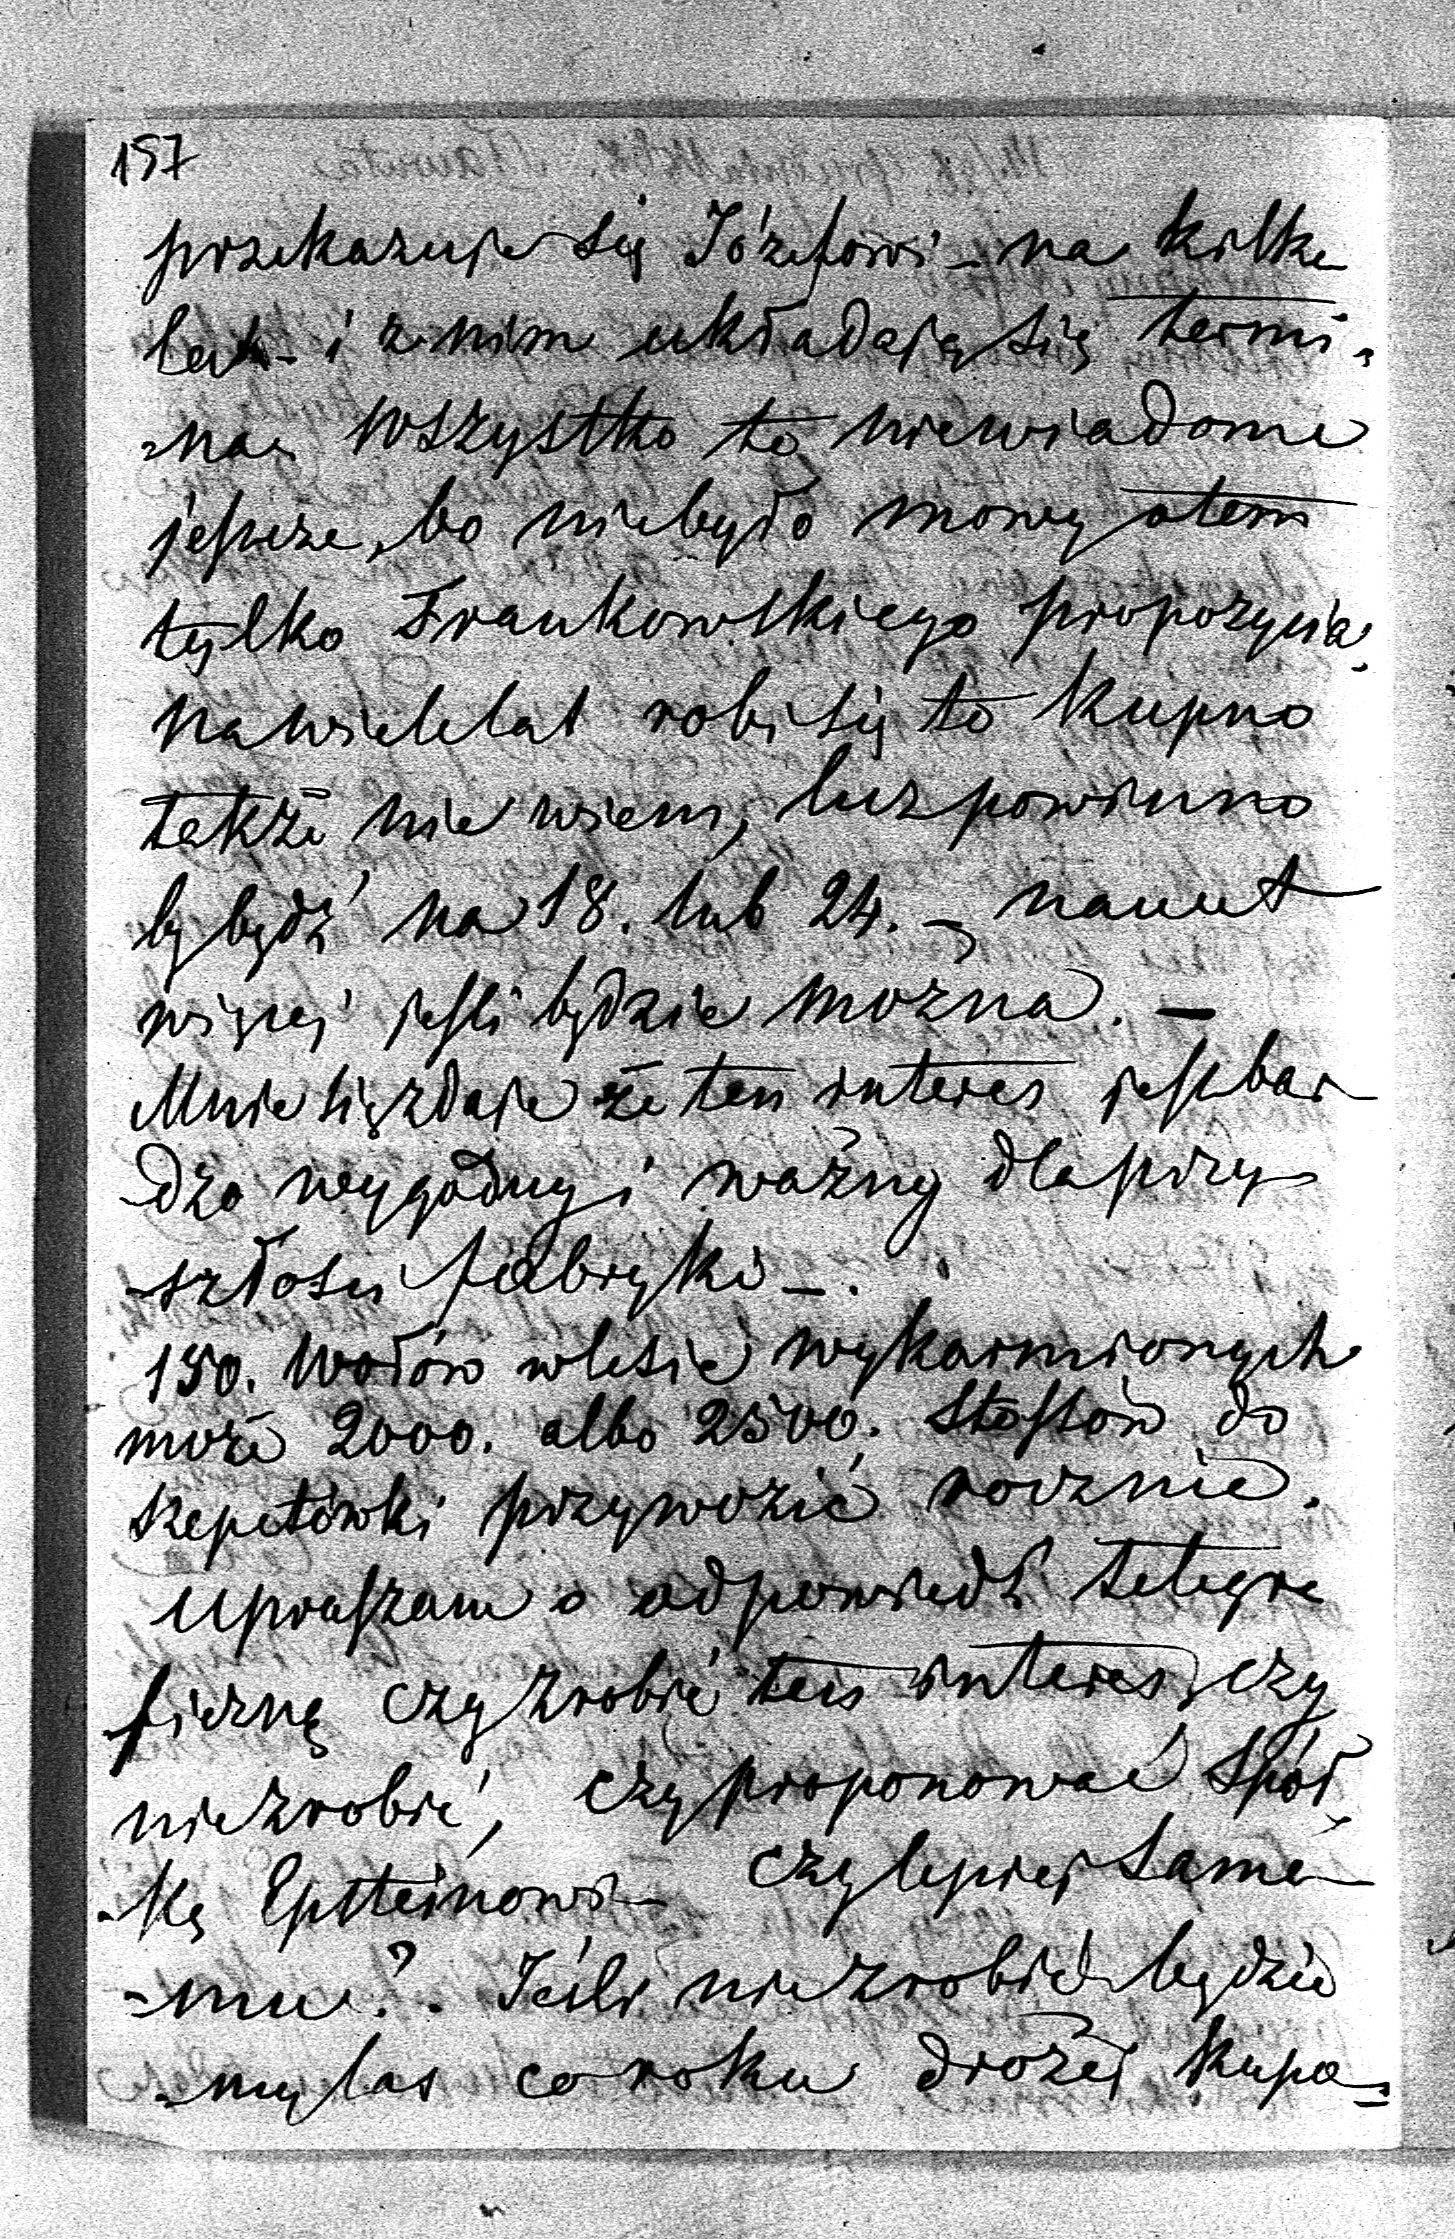 157
przekazuje się Józefowi – na kilka
lat – i z nim układają się termi-
-na. Wszystko to niewiadome
jeszcze, bo niebyło mowy otem
tylko Frankowskiego propozycia.
Na wiele lat robi się to kupno
także nie wiem, lecz powinno
by bydź na 18. lub 24. – nawet
więcej jeśli będzie można. –
Mnie się zdaje że ten interes jest bar
dzo wygodny i ważny dla przy
-szłości fabryki –.
150. Wołów w lesie wykarmionych
może 2000. albo 2500. Stossów do
Szepetówki przywozić rocznie.
Upraszam o odpowiedź telegra
ficzną czy zrobić ten interes, czy
niezrobić, czy proponować Spół
-kę Epsteinowi – czy lepiej Same
-mu?. Jeśli niezrobić będzie
-my las co roku drożej kupo-